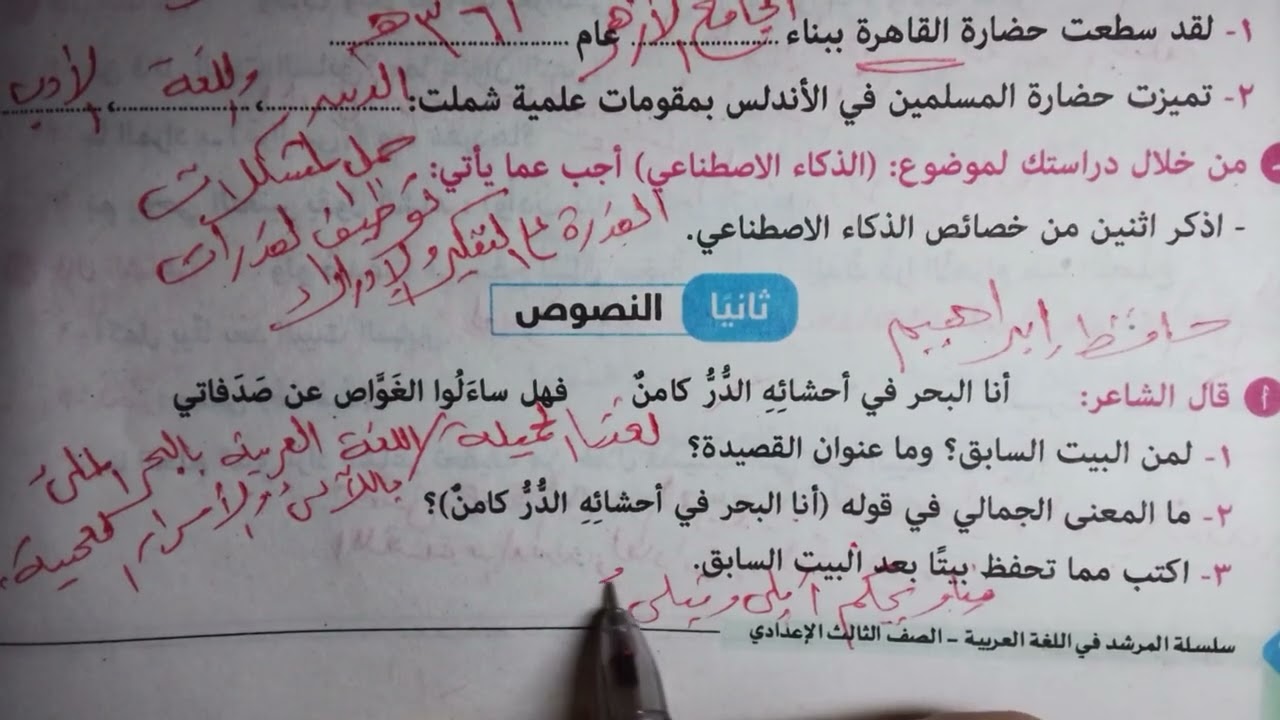 ١- لقد سطعت حضارة القاهرة ببناء الجامع الأزهر عام ٣٦١هـ
٢- تميزت حضارة المسلمين في الأندلس بمقومات علمية شملت: الدين، واللغة، الأدب
من خلال دراستك لموضوع: (الذكاء الاصطناعي) أجب عما يأتي: حل المشكلات
- اذكر اثنين من خصائص الذكاء الاصطناعي. القدرة على التفكير والإدراك توظيف القدرات
ثانيًا النصوص
حافظ إبراهيم
أ قال الشاعر: أنا البحر في أحشائِهِ الدُّرُّ كامنٌ فهل ساءَلُوا الغَوَّاص عن صَدَفاتي
١- لمن البيت السابق؟ وما عنوان القصيدة؟ لغتنا الجميلة
٢- ما المعنى الجمالي في قوله (أنا البحر في أحشائِهِ الدُّرُّ كامنٌ)؟ اللغة العربية بالبحر باللآلئ والأسرار العجيبة.
٣- اكتب مما تحفظ بيتًا بعد البيت السابق.
أبلى وتبلى
سلسلة المرشد في اللغة العربية – الصف الثالث الإعدادي